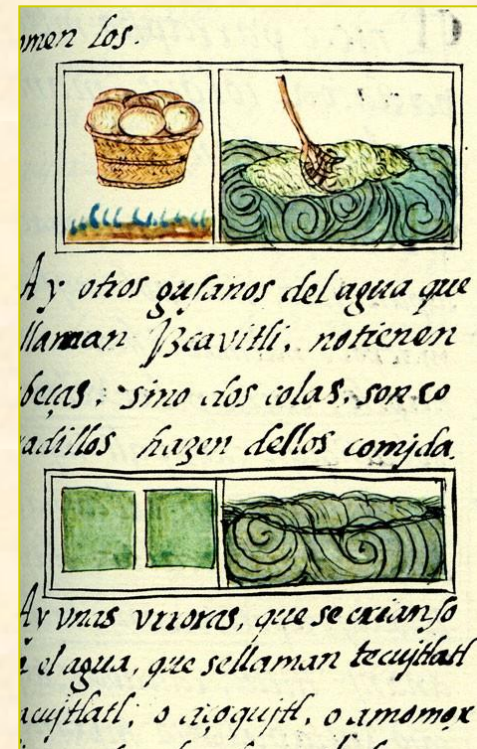 omen los.
Ay otros gusanos del agua que
llaman Yzcavitli, no tienen
beças, sino dos colas, son co
radillos hazen dellos comjda.
Ay vnas vrroras, que se crian so
el agua, que se llaman tecujtlatl
acujtlatl, o açoqujtl, o amomox